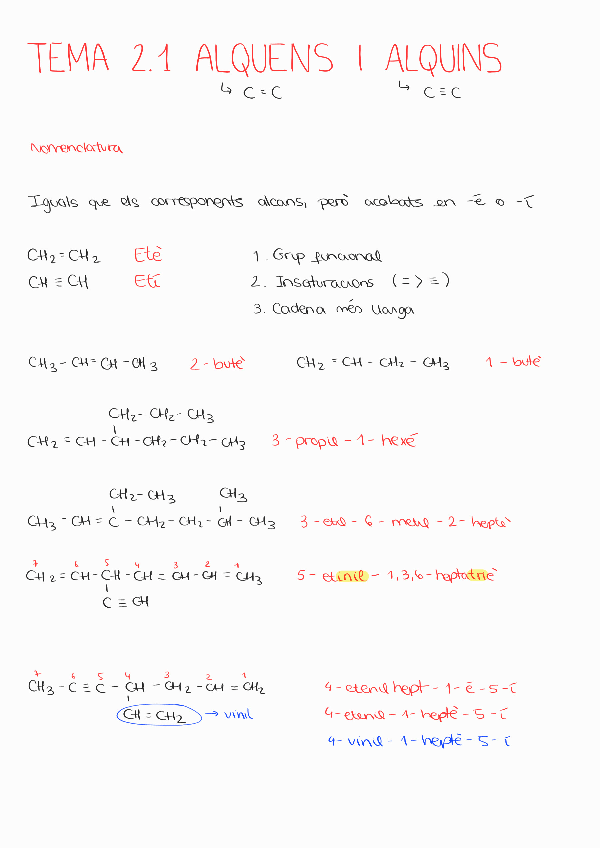 TEMA 2.1 ALQUENS I ALQUINS
↳ C = C ↳ C ≡ C
Nomenclatura
Iguals que els corresponents alcans, però acabats en -è o -í
CH2 = CH2 Etè 1. Grup funcional
CH ≡ CH Etí 2. Insaturacions ( = > ≡ )
3. Cadena més llarga
CH3 - CH = CH - CH3 2 - butè CH2 = CH - CH2 - CH3 1 - butè
CH2 - CH2 - CH3
CH2 = CH - CH - CH2 - CH2 - CH3 3 - propil - 1 - hexé
CH2 - CH3 CH3
CH3 - CH = C - CH2 - CH2 - CH - CH3 3 - etil - 6 - metil - 2 - heptè
7 6 5 4 3 2 1
CH2 = CH - CH - CH = CH - CH = CH3 5 - etinil - 1,3,6 - heptatriè
C ≡ CH
7 6 5 4 3 2 1
CH3 - C ≡ C - CH - CH2 - CH = CH2 4 - etenil hept - 1 - è - 5 - í
CH = CH2 → vinil 4 - etenil - 1 - heptè - 5 - í
4 - vinil - 1 - heptè - 5 - í